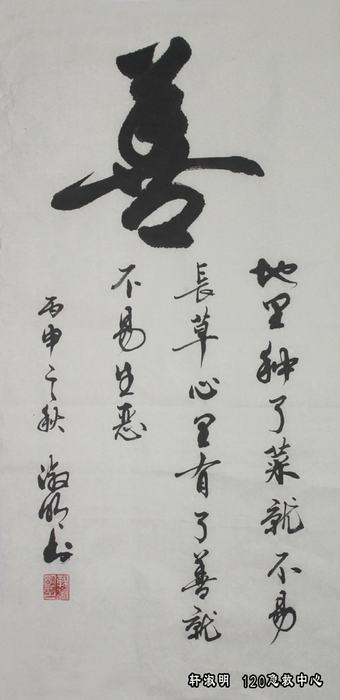 善
地里种了菜就不易
長草心里有了善就
不易生恶
丙申之秋 淑明书
轩淑明 120急救中心